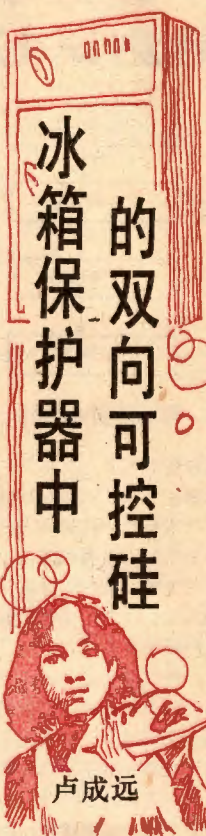 冰箱保护器中
的双向可控硅
卢成远